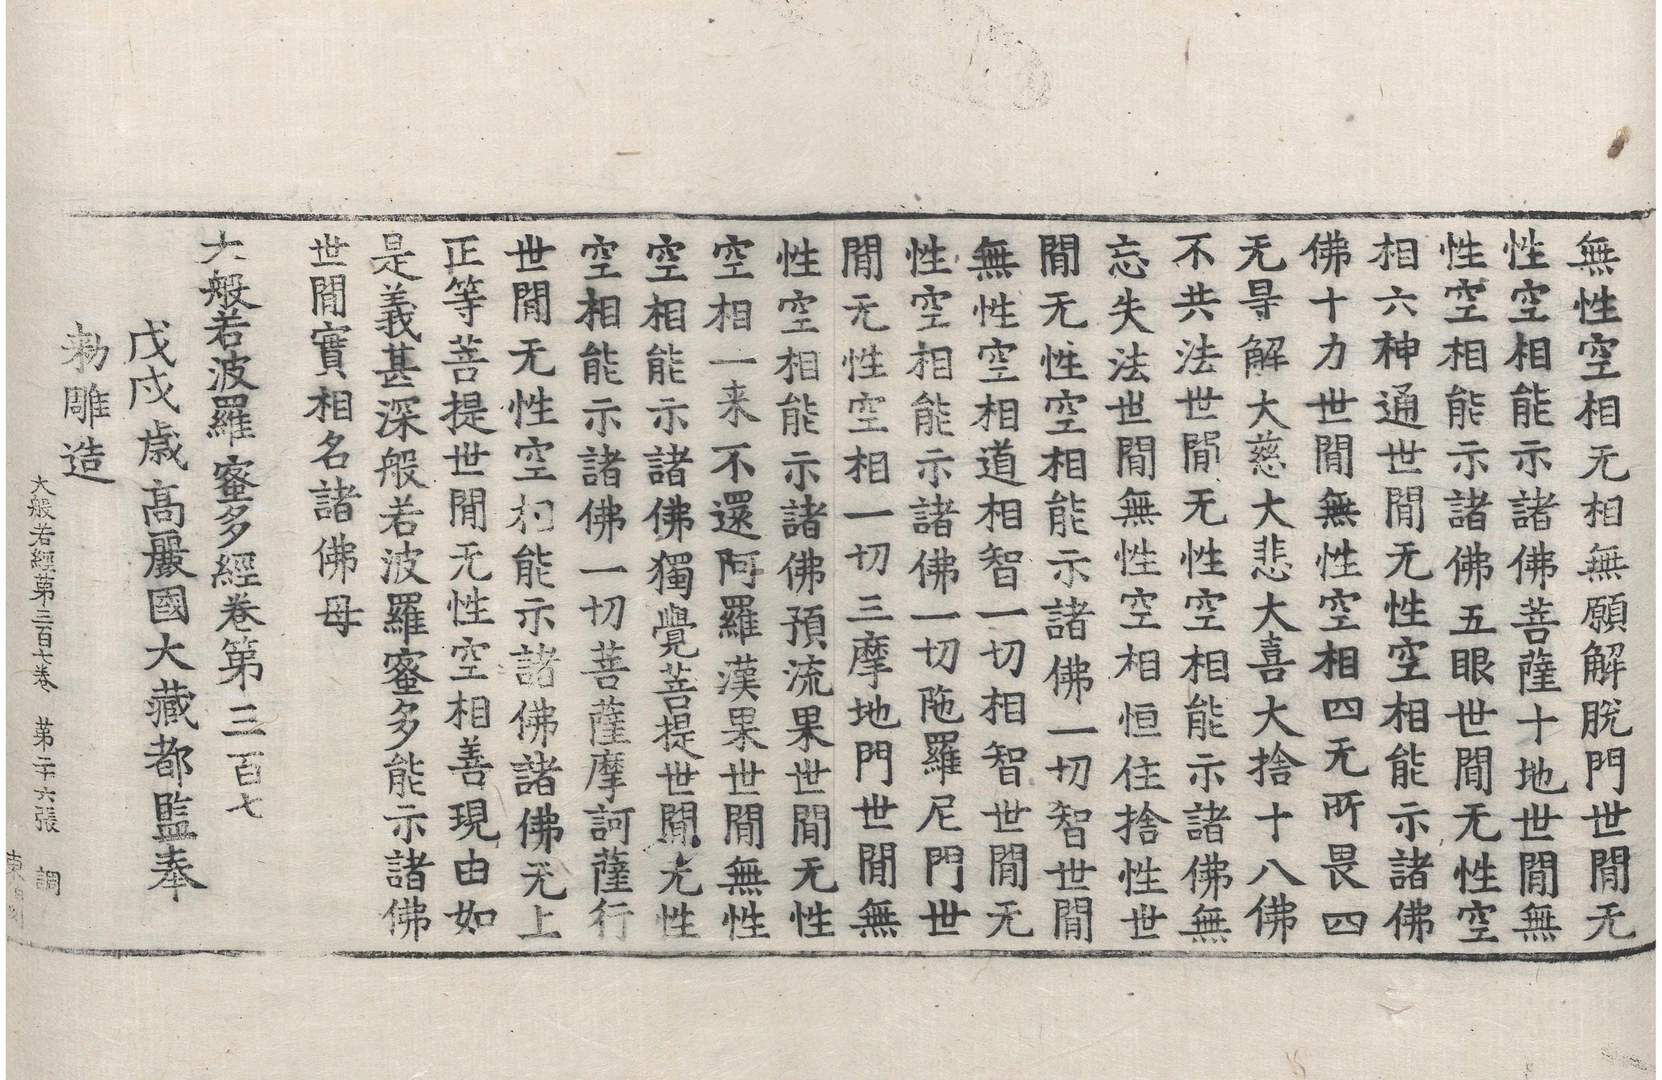 無性空相无相無願解脫門世閒无
性空相能示諸佛菩薩十地世閒無
性空相能示諸佛五眼世閒无性空
相六神通世閒无性空相能示諸佛
佛十力世閒無性空相四无所畏四
无㝵解大慈大悲大喜大捨十八佛
不共法世閒无性空相能示諸佛無
忘失法世閒無性空相恒住捨性世
閒无性空相能示諸佛一切智世閒
無性空相道相智一切相智世閒无
性空相能示諸佛一切陁羅尼門世
閒无性空相一切三摩地門世閒無
性空相能示諸佛預流果世閒无性
空相一来不還阿羅漢果世閒無性
空相能示諸佛獨覺菩提世閒无性
空相能示諸佛一切菩薩摩訶薩行
世閒无性空相能示諸佛諸佛无上
正等菩提世閒无性空相善現由如
是義甚深般若波羅蜜多能示諸佛
世閒實相名諸佛母
大般若波羅蜜多經卷第三百七
戊戌歳髙麗國大藏都監奉
勅雕造
大般若經第三百七卷 苐二十六張 調